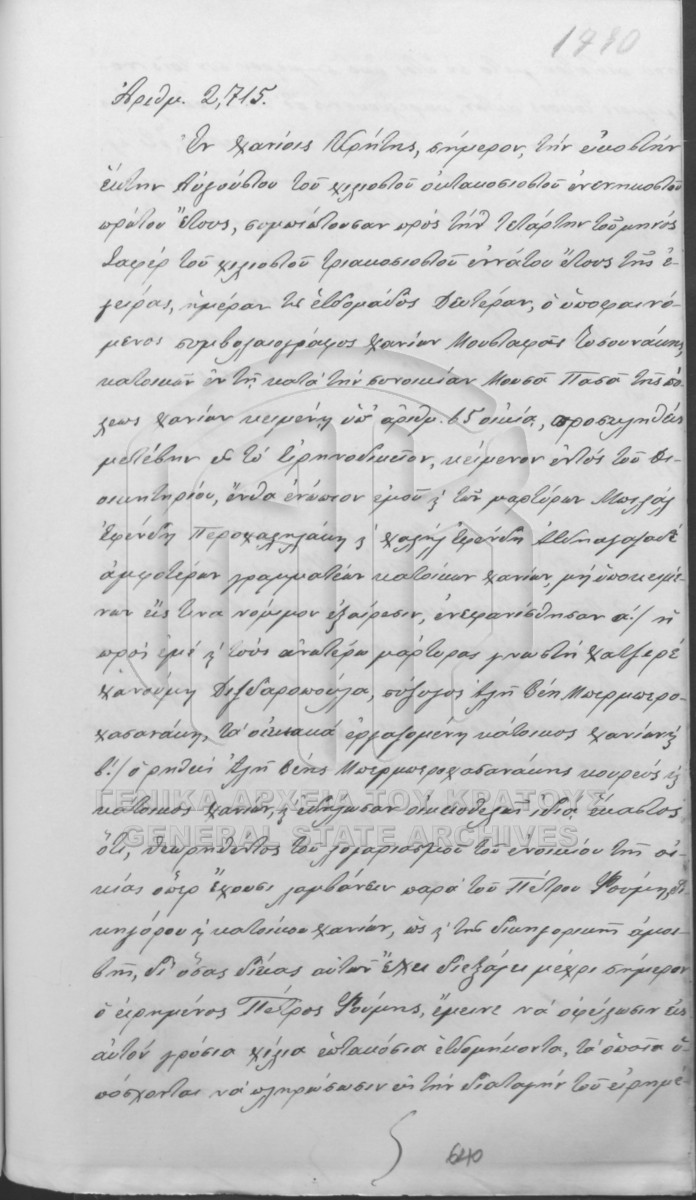 1790
Ἀριθμ. 2,715.
Ἐν Χανίοις Κρήτης, σήμερον, τὴν εἰκοστὴν
ἕκτην Αὐγούστου τοῦ χιλιοστοῦ ὀκτακοσιοστοῦ ἐνενηκοστοῦ
πρώτου ἔτους, συμπίπτουσαν πρὸς τὴν τετάρτην τοῦ μηνὸς
Σαφὲρ τοῦ χιλιοστοῦ τριακοσιοστοῦ ἐννάτου ἔτους τῆς ἐ-
γείρας, ἡμέραν τῆς ἑβδομάδος Δευτέραν, ὁ ὑποφαινό-
μενος συμβολαιογράφος Χανίων Μουσταφᾶς
κατοικῶν ἐν τῇ κατὰ τὴν συνοικίαν Μουσᾶ Πασᾶ τῆς πό-
λεως Χανίων κειμένῃ ὑπ' ἀριθμ. 65 οἰκίᾳ, προσκληθεὶς
μετέβην εἰς τὸ Εἰρηνοδικεῖον, κείμενον ἐντὸς τοῦ Δι-
οικητηρίου, ἔνθα ἐνώπιον ἐμοῦ καὶ τῶν μαρτύρων Μπιλὰλ
Ἐφένδη καὶ Χαλὴλ Ἐφένδη
ἀμφοτέρων γραμματέων κατοίκων Χανίων, μὴ ὑποκειμέ-
νων εἴς τινα νόμιμον ἐξαίρεσιν, ἐνεφανίσθησαν α!/ ἡ
πρὸς ἐμὲ καὶ τοὺς ἀνωτέρω μάρτυρας γνωστὴ Χατζερὲ
Χανούμη Δεφδαροπούλα, σύζυγος Ἀλῆ Βέη Μπερμπερο-
χασανάκη, τὰ οἰκιακὰ ἐργαζομένη κάτοικος Χανίων καὶ
β!/ ὁ ρηθεὶς Ἀλῆ Βέης Μπερμπεροχασανάκης κουρεὺς καὶ
κάτοικος Χανίων, καὶ ἐδήλωσαν οἰκειοθελῶς ἰδίᾳ ἕκαστος
ὅτι, θεωρηθέντος τοῦ λογαριασμοῦ τοῦ ἐνοικίου τῆς οἰ-
κίας ὅπερ ἔχουσι λαμβάνειν παρὰ τοῦ Πέτρου Φούμη δι-
κηγόρου καὶ κατοίκου Χανίων, ὡς καὶ τῆς δικηγορικῆς ἀμοι-
βῆς, δι' ὅσας δίκας αὐτῶν ἔχει διεξάγει μέχρι σήμερον
ὁ εἰρημένος Πέτρος Φούμης, ἔμεινε νὰ ὀφείλωσιν εἰς
αὐτόν γρόσια χίλια ἑπτακόσια ἑβδομήκοντα, τὰ ὁποῖα ὑ-
πόσχονται νὰ πληρώσωσιν εἰς τὴν διαταγὴν τοῦ εἰρημέ-
640
ΓΕΝΙΚΑ ΑΡΧΕΙΑ ΤΟΥ ΚΡΑΤΟΥΣ
GENERAL STATE ARCHIVES